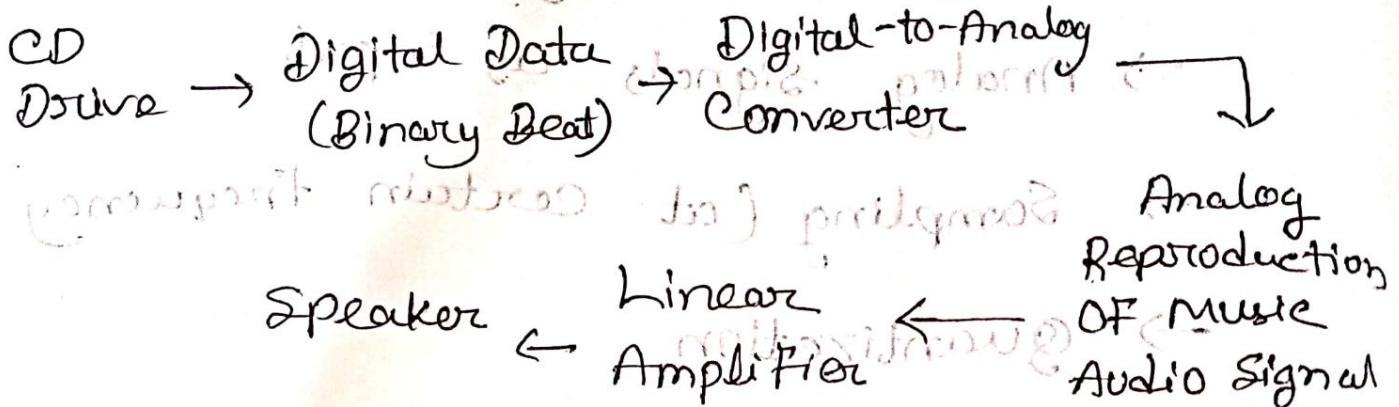 CD
Drive → Digital Data
(Binary Beat) → Digital-to-Analog
Converter
Analog
Reproduction
OF Music
Audio Signal
Linear
Amplifier
Speaker